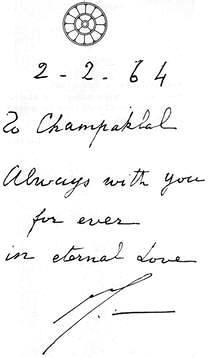 2 - 2 - 64
To Champaklal
Always with you
for ever
in eternal Love